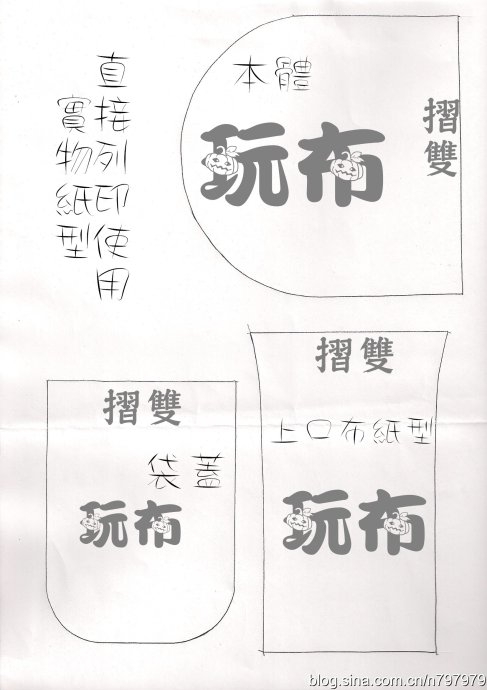 直接列印使用
實物紙型
本體
摺雙
玩布
摺雙
上口布紙型
玩布
摺雙
袋蓋
玩布
blog.sina.com.cn/n797979